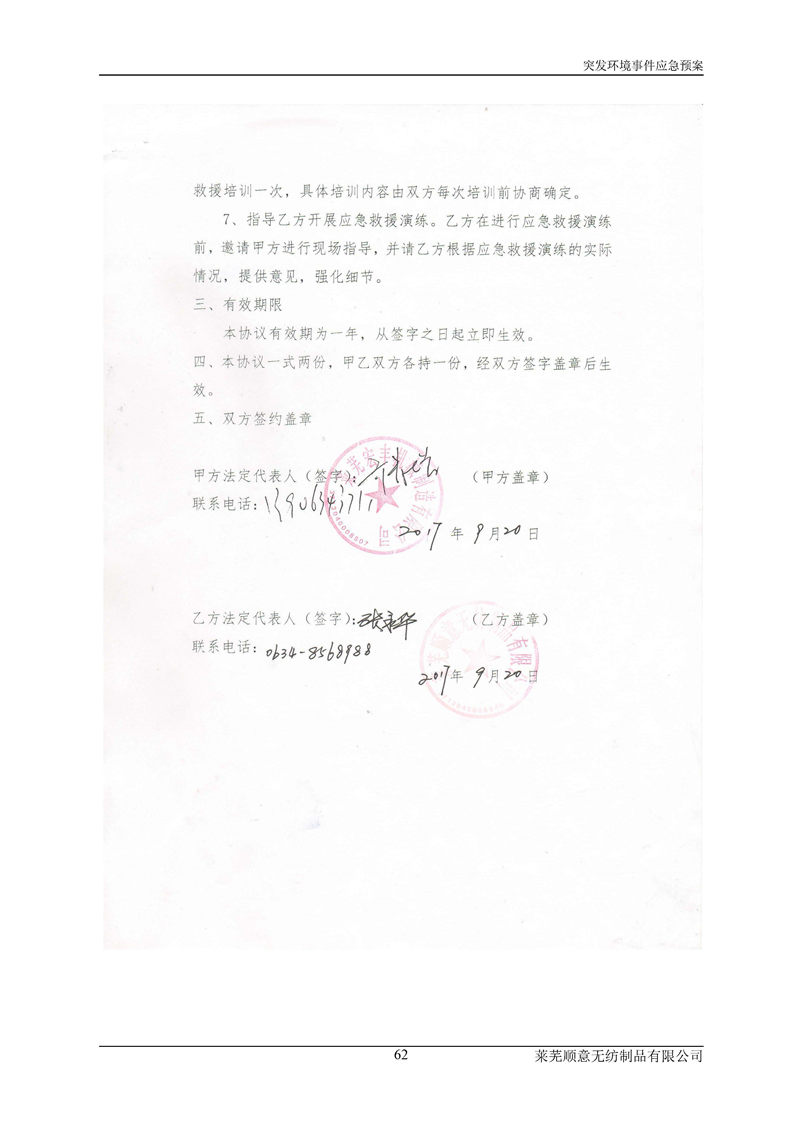 突发环境事件应急预案
救援培训一次，具体培训内容由双方每次培训前协商确定。
7、指导乙方开展应急救援演练。乙方在进行应急救援演练
前，邀请甲方进行现场指导，并请乙方根据应急救援演练的实际
情况，提供意见，强化细节。
三、有效期限
本协议有效期为一年，从签字之日起立即生效。
四、本协议一式两份，甲乙双方各持一份，经双方签字盖章后生
效。
五、双方签约盖章
甲方法定代表人（签字）： （甲方盖章）
联系电话：
2017 年 9 月 20 日
乙方法定代表人（签字）： （乙方盖章）
联系电话：0634-8568988
2017 年 9 月 20 日
有限
62
莱芜顺意无纺制品有限公司